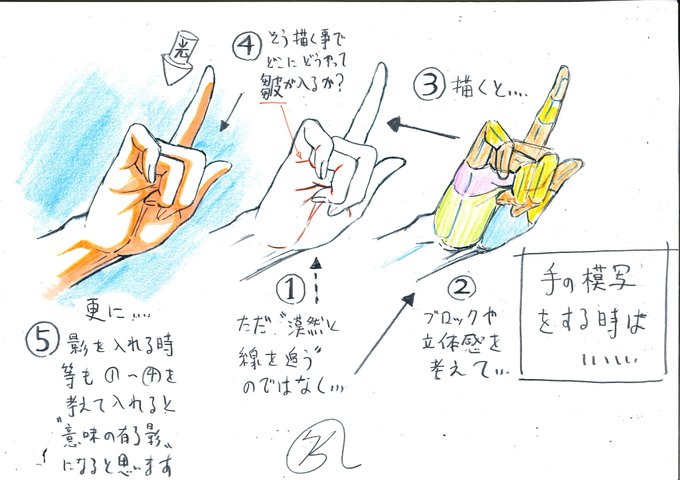 手の模写
をする時は
……
①
ただ"漠然と
線を追う"
のではなく…
②
ブロックや
立体感を
考えて…
③ 描くと….
④ そう描く事で
どこにどうやって
皺が入るか?
光
更に….
⑤ 影を入れる時
等も①〜④を
考えて入れると
"意味の有る影"
になると思います